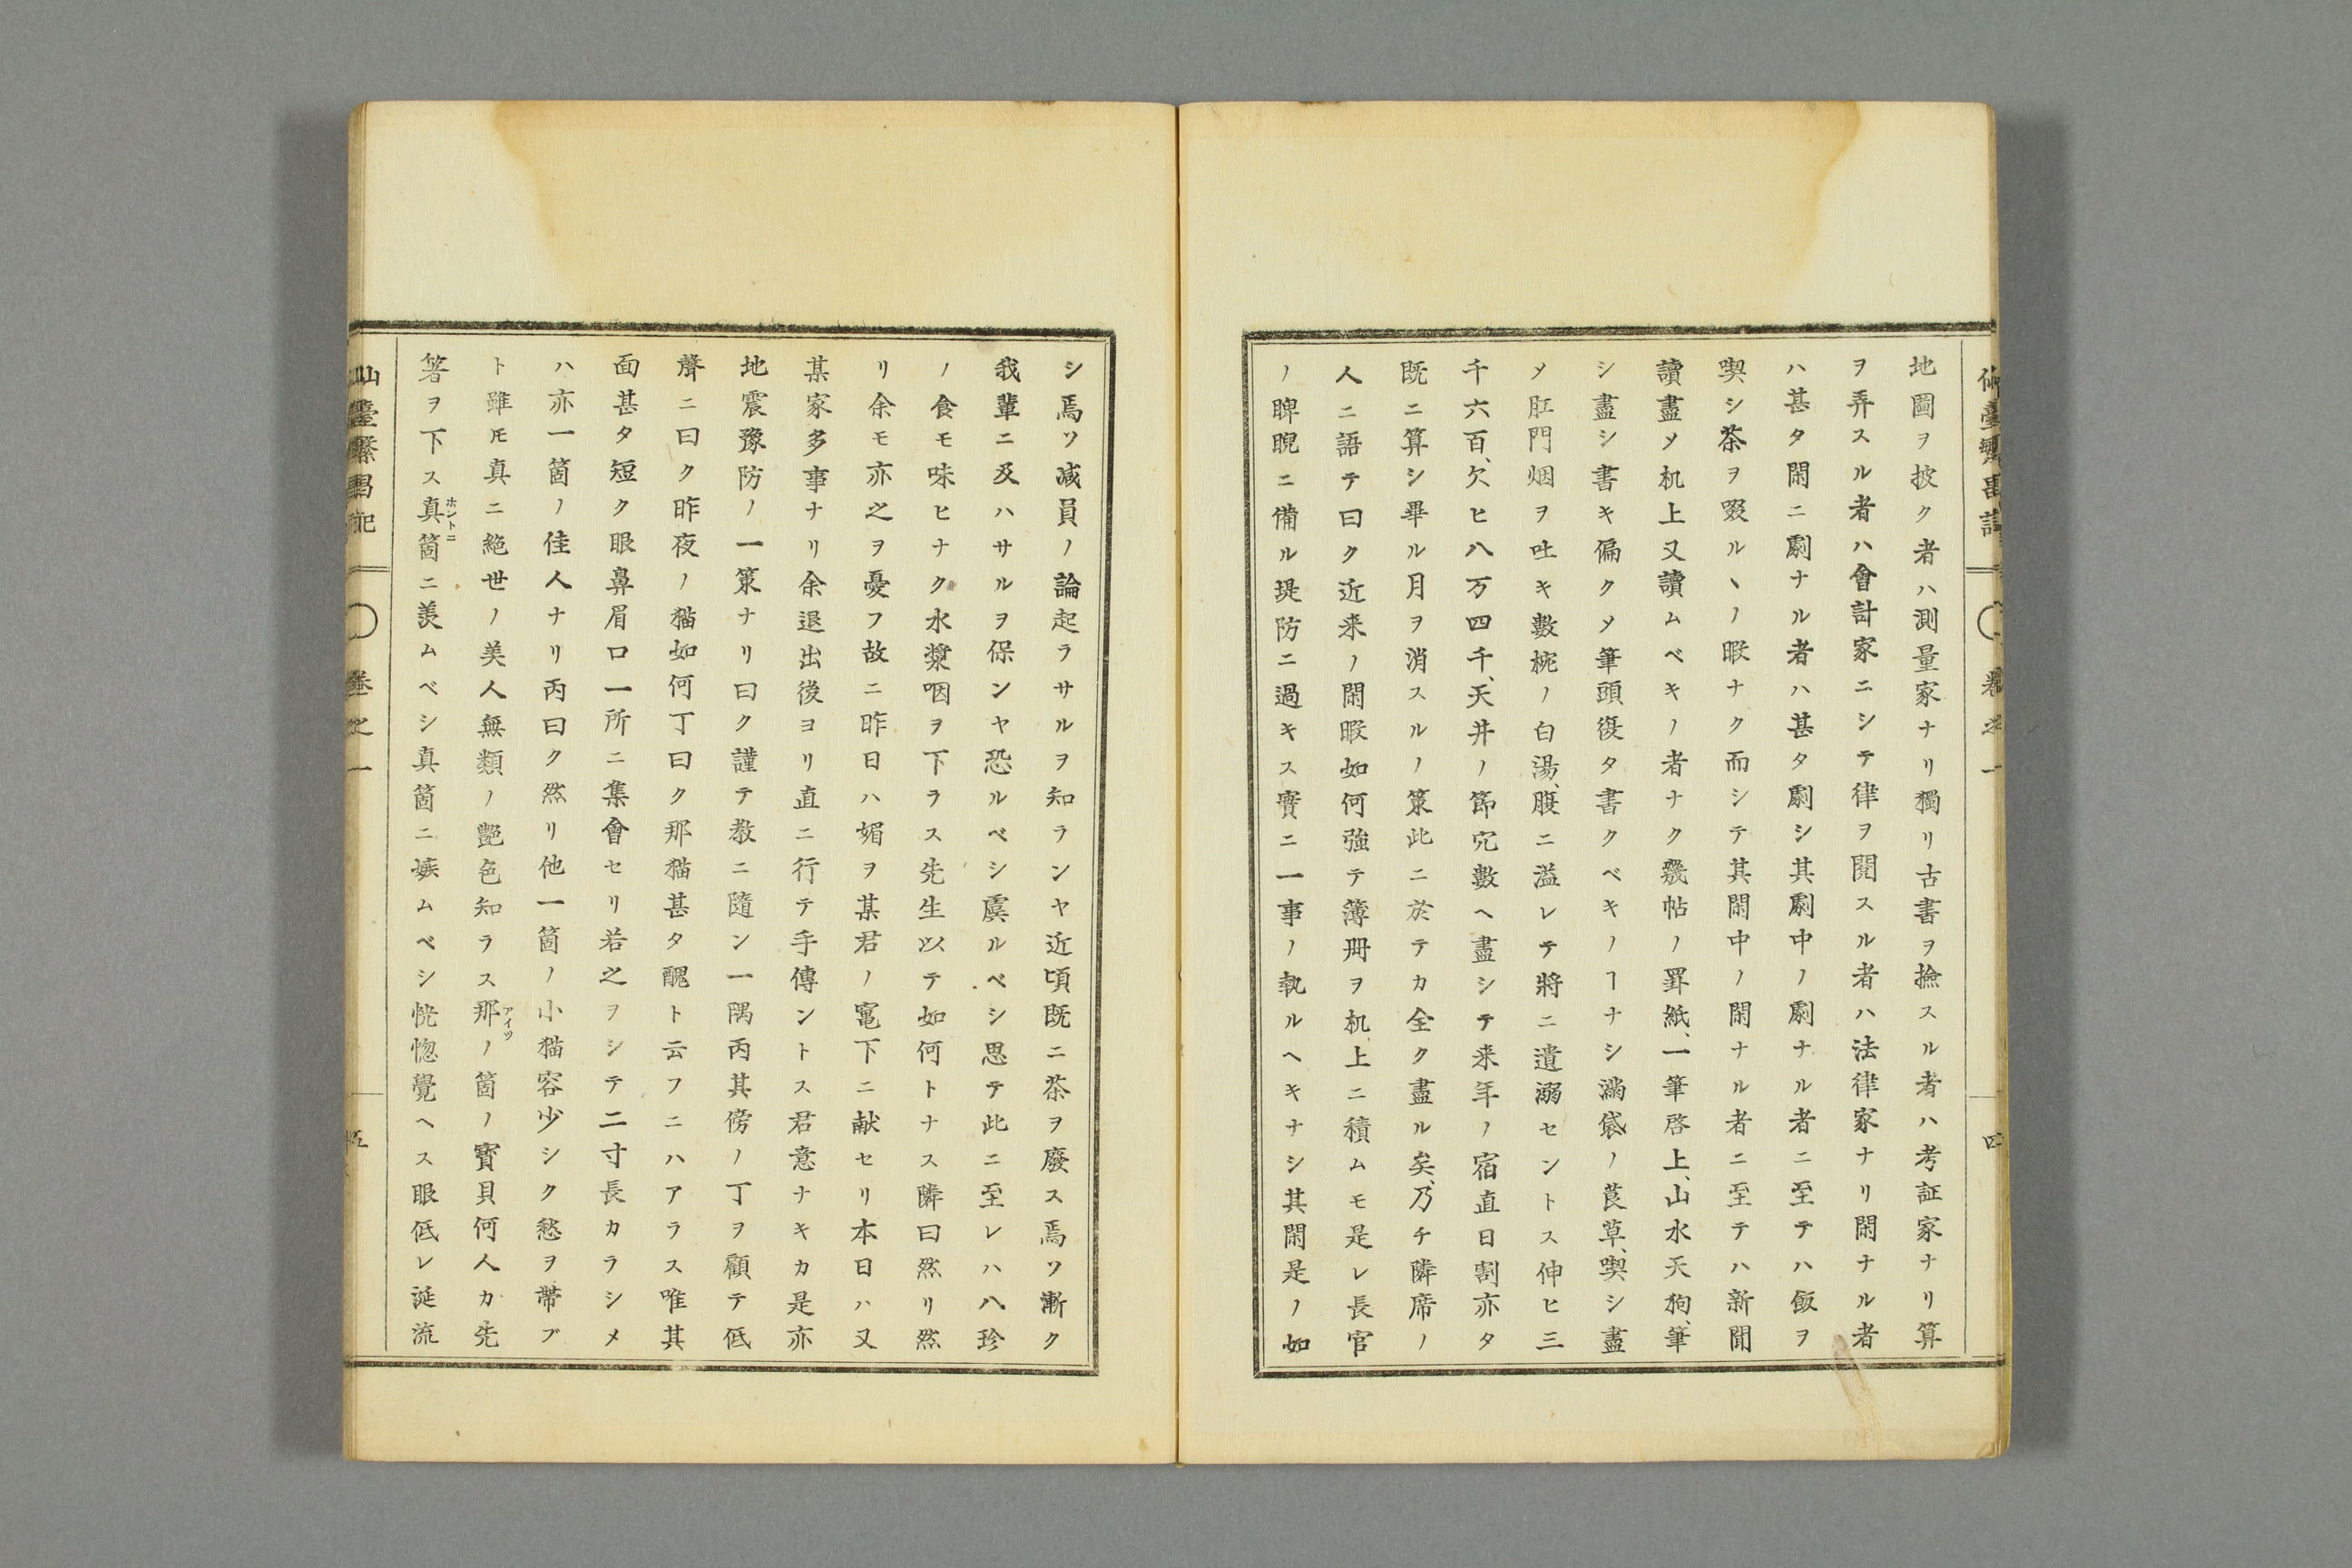 仙臺繁昌記 卷之一 四
地圖ヲ披ク者ハ測量家ナリ獨リ古書ヲ撿スル者ハ考証家ナリ算
ヲ弄スル者ハ會計家ニシテ律ヲ閲スル者ハ法律家ナリ閑ナル者
ハ甚タ閑ニ劇ナル者ハ甚タ劇シ其劇中ノ劇ナル者ニ至テハ飯ヲ
喫シ茶ヲ啜ルヽノ暇ナク而シテ其閑中ノ閑ナル者ニ至テハ新聞
讀盡ソ机上又讀ムベキノ者ナク幾帖ノ罫紙、一筆啓上、山水天狗、筆
シ盡シ書キ偏クソ筆頭復タ書クベキノヿナシ滿袋ノ莨草、喫シ盡
ソ肛門烟ヲ吐キ數椀ノ白湯、腹ニ溢レテ將ニ遺溺セントス伸ヒ三
千六百、欠ヒ八万四千、天井ノ節穴數ヘ盡シテ来年ノ宿直日割亦タ
既ニ算シ畢ル月ヲ消スルノ策此ニ於テカ全ク盡ル矣、乃チ隣席ノ
人ニ語テ曰ク近来ノ閑暇如何強テ簿冊ヲ机上ニ積ムモ是レ長官
ノ睥睨ニ備ル堤防ニ過キス實ニ一事ノ執ルヘキナシ其閑是ノ如
シ焉ソ減員ノ論起ラサルヲ知ランヤ近頃既ニ茶ヲ廢ス焉ソ漸ク
我輩ニ及ハサルヲ保ンヤ恐ルベシ虞ルベシ思テ此ニ至レハ八珍
ノ食モ味ヒナク水漿咽ヲ下ラス先生以テ如何トナス隣曰然リ然
リ余モ亦之ヲ憂フ故ニ昨日ハ媚ヲ某君ノ竃下ニ献セリ本日ハ又
某家多事ナリ余退出後ヨリ直ニ行テ手傳ントス君意ナキカ是亦
地震豫防ノ一策ナリ曰ク謹テ教ニ隨ン一隅丙其傍ノ丁ヲ顧テ低
聲ニ曰ク昨夜ノ猫如何丁曰ク那猫甚タ醜ト云フニハアラス唯其
面甚タ短ク眼鼻眉口一所ニ集會セリ若之ヲシテ二寸長カラシメ
ハ亦一箇ノ佳人ナリ丙曰ク然リ他一箇ノ小猫容少シク愁ヲ帶ブ
ト雖𪜈真ニ絶世ノ美人無類ノ艶色知ラス那アイツノ箇ノ寳貝何人カ先
箸ヲ下ス真箇ホントニニ羨ムベシ真箇ニ嫉ムベシ恍惚覺ヘス眼低レ涎流
仙臺繁昌記 卷之一 五